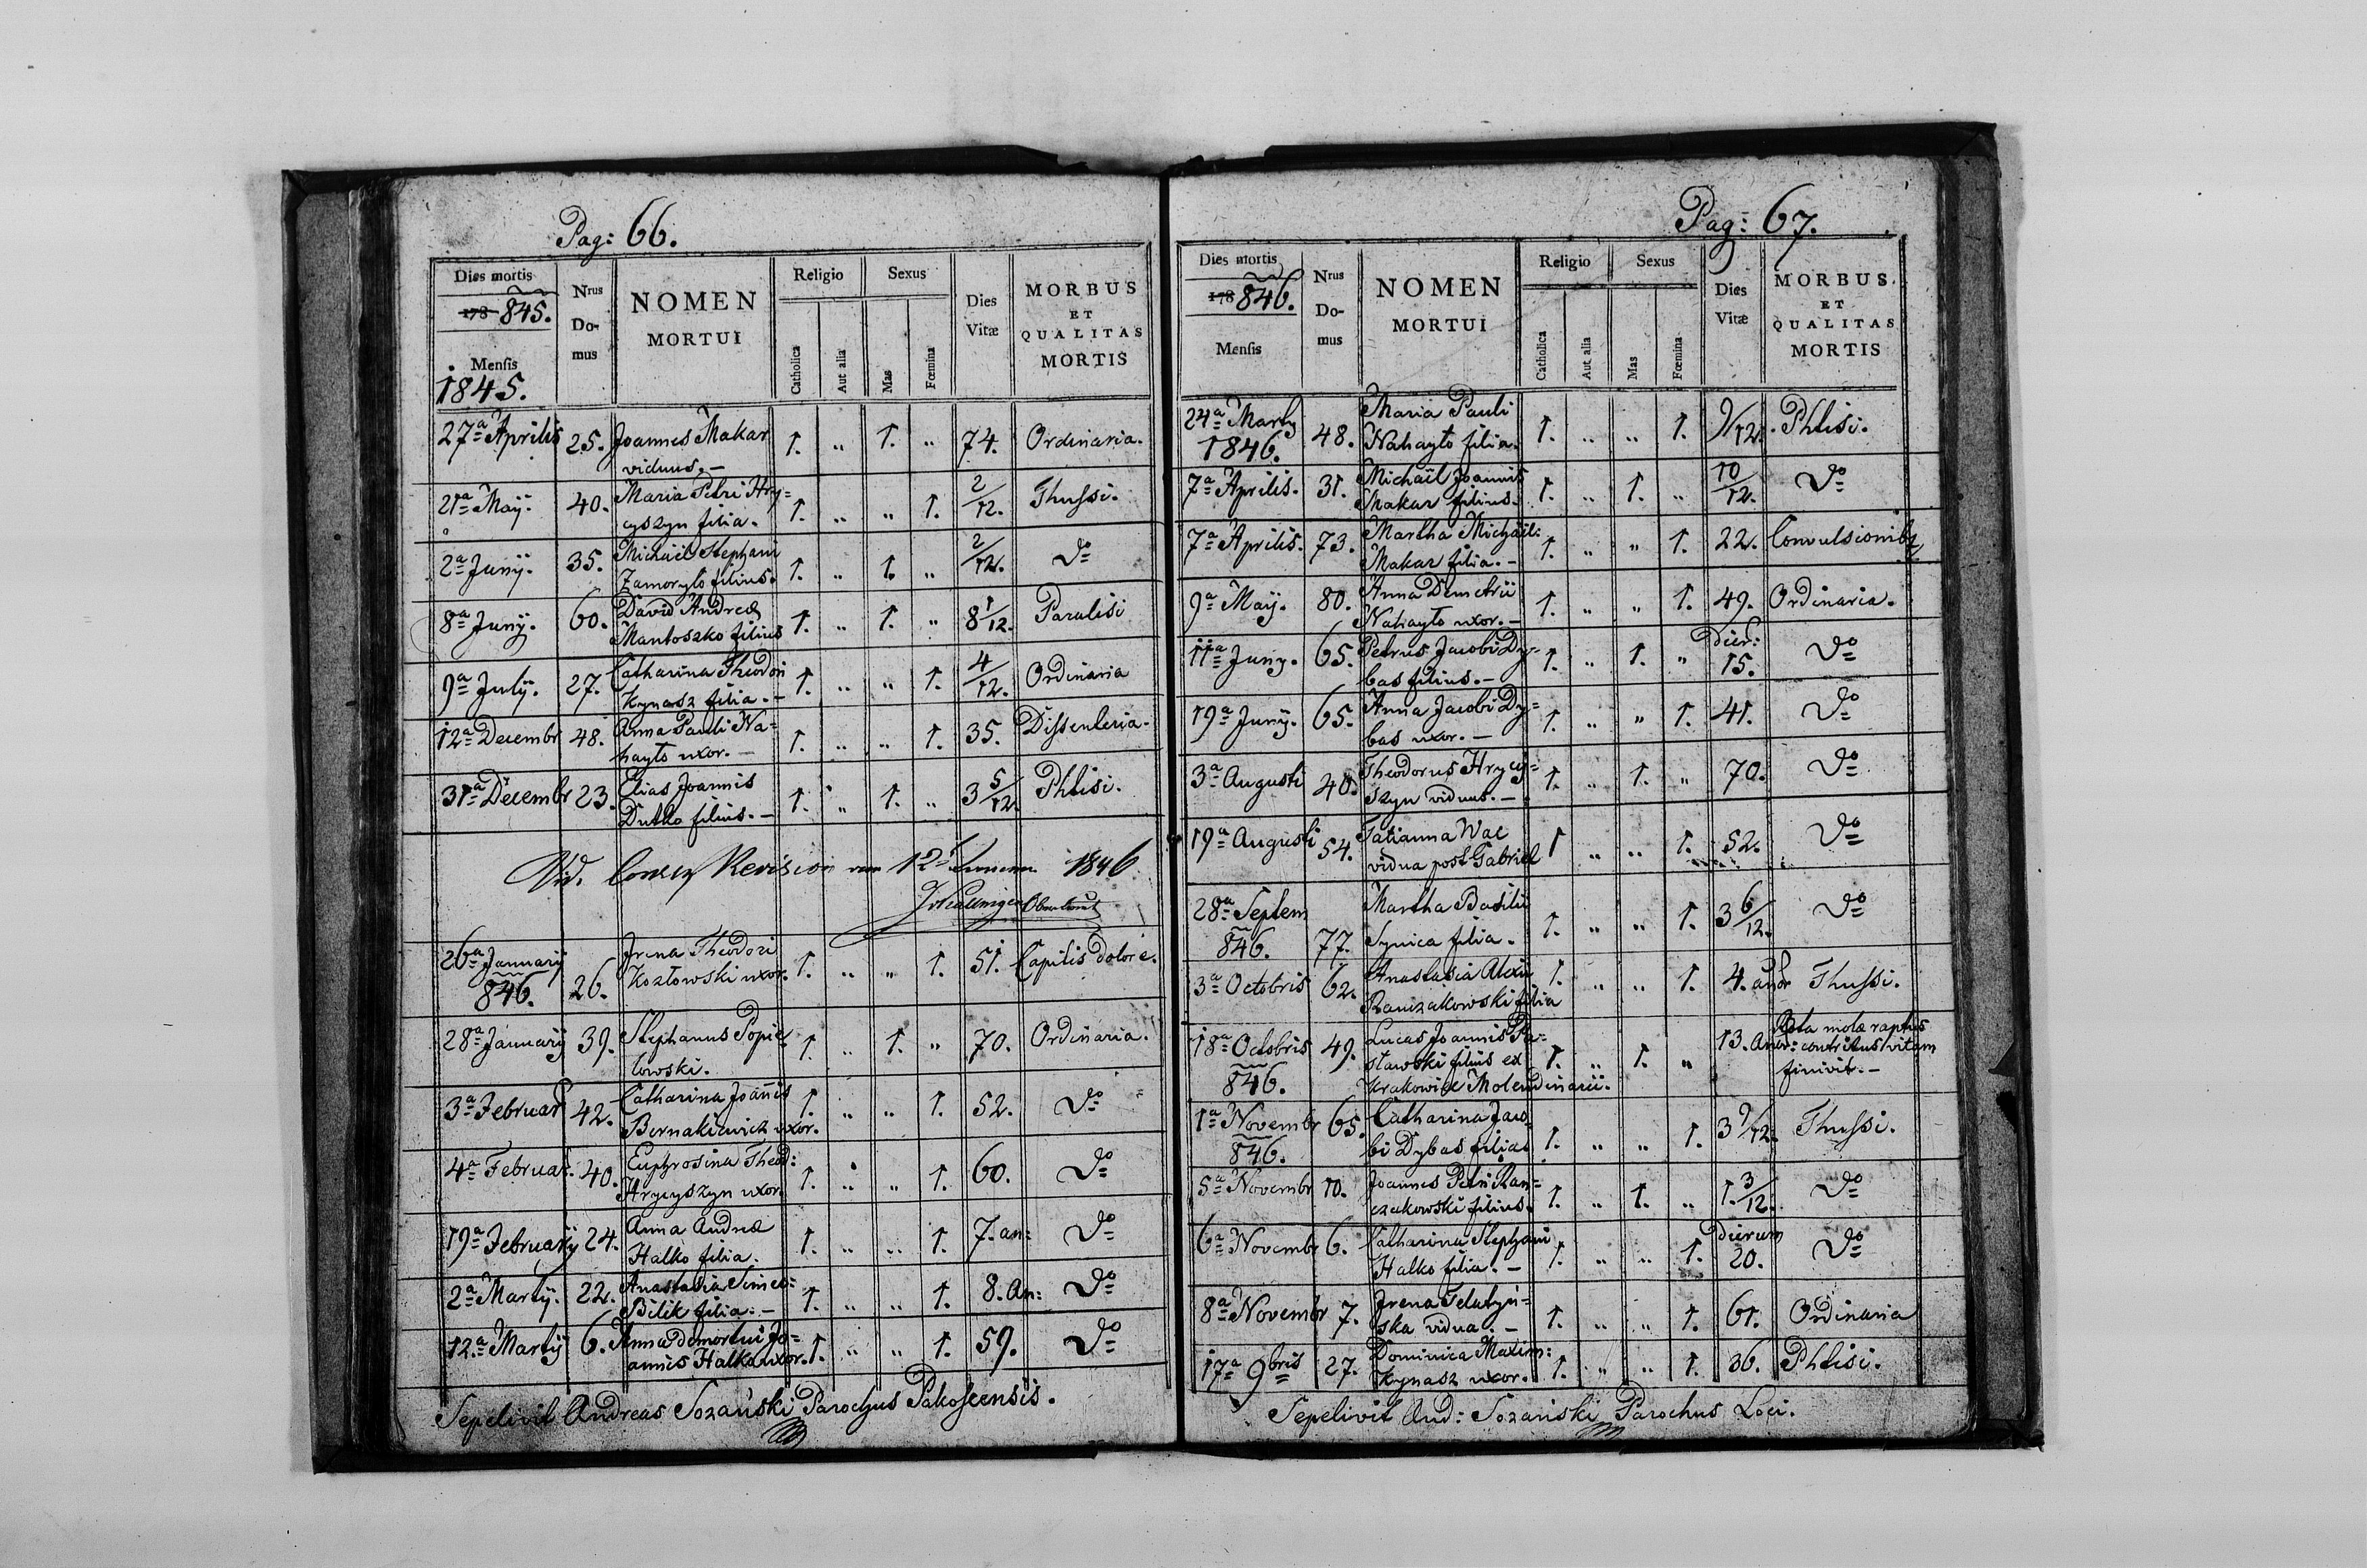 Pag: 66.
Dies mortis
178 845.
Mensis
1845.
Nrus
Do-
mus
NOMEN
MORTUI
Religio
Catholica
Aut alia
Sexus
Mas
Fœmina
Dies
Vitæ
MORBUS
ET
QUALITAS
MORTIS
27a Aprilis 25. Joannes Makar 1. „ 1. „ 74. Ordinaria.
viduus. –
21a Maij. 40. Maria Petri Hry=
cyszyn filia. 1. „ „ 1. 2/12. Thussi.
2a Junij. 35. Michäel Stephani
Zamoryło filius. 1. „ 1. „ 2/12. do
8a Junij. 60. David Andreæ
Mantoszko filius 1. „ 1. „ 8 1/12. Paralisi
9a Julij. 27. Catharina Theodori
Kynasz filia. – 1. „ „ 1. 4/12. Ordinaria
12a Decembr 48. Anna Pauli Na=
hayło uxor. – 1. „ „ 1. 35. Dissenteria.
31a Decembr 23. Elias Joannis
Dutko filius. – 1. „ 1. „ 3 5/12 Phtisi.
Vid. Revision 12 1846
26a Januarij 846. 26. Irena Theodori
Kozłowski uxor. 1. „ „ 1. 51. Capitis dolore.
28a Januarij 39. Stephanus Popie
lowski. 1. „ 1. „ 70. Ordinaria.
3a Februar 42. Catharina Joannis
Bernakiewicz uxor. 1. „ „ 1. 52. do
4a Februar. 40. Euphrosina Theod:
Hrycyszyn uxor. 1. „ „ 1. 60. do
19a Februarij 24. Anna Andreæ
Halko filia. 1. „ „ 1. 7. an: do
2a Martij. 22. Anastasia Simeo:
Bilik filia. – 1. „ „ 1. 8. An: do
12.a Martij 6. Anna demortui Jo=
annis Halko uxor. 1. „ „ 1. 59. do
Sepelivit Andreas Sozański Parochus Pakoscensis.
Pag: 67.
Dies mortis
178 846.
Mensis
Nrus
Do-
mus
NOMEN
MORTUI
Religio
Catholica
Aut alia
Sexus
Mas
Fœmina
Dies
Vitæ
MORBUS
ET
QUALITAS
MORTIS
24a Martij 1846. 48. Maria Pauli
Nahayło filia. 1. „ „ 1. 9/12. Phtisi.
7a Aprilis. 31. Michäil Joannis
Makar filius. 1. „ 1. „ 10/12. do
7a Aprilis. 73. Martha Michäil:
Makar filia. – 1. „ „ 1. 22. Convulsionibq
9a Maij. 80. Anna Demetrii
Nahayło uxor. – 1. „ „ 1. 49. Ordinaria.
11a Junij. 65. Petrus Jacobi Dy=
bas filius. – 1. „ 1. „ Dier: 15. do
19a Junij. 65. Anna Jacobi Dy=
bas uxor. – 1. „ „ 1. 41. do
3a Augusti 40. Theodorus Hrycy=
szyn viduus. – 1. „ 1. „ 70. do
19a Augusti 54. Tatianna Wac
vidua post Gabriel 1 „ „ 1. 52. do
28a Septem 846. 77. Martha Basilii
Synica filia. 1. „ „ 1. 3 6/12. do
3a Octobris 62. Anastasia Alexii
Ranczakowski filia 1. „ „ 1. 4. anor Thussi.
18a Octobris 846. 49. Lucas Joannis
sławski filius ex
Krakowice Molendinarii. 1. „ 1. „ 13. Anor: Rota molæ raptus
contritus vitam
finivit. –
1a Novembr 846. 65. Catharina Jaco
bi Dybas filia 1. „ „ 1. 3 9/12. Thussi.
5a Novembr 10. Joannes Petri Ran=
czakowski filius. 1. „ 1. „ 1. 3/12. do
6a Novembr 6. Catharina Stephani
Halko filia. – 1. „ „ 1. Dierum 20. do
8a Novembr 7. Irena Telatyń=
ska vidua. – 1. „ „ 1. 61. Ordinaria
17a 9bris 27. Dominica Maxim:
Kynasz uxor. 1. „ „ 1. 36. Phtisi.
Sepelivit And: Sozański Parochus Loci.